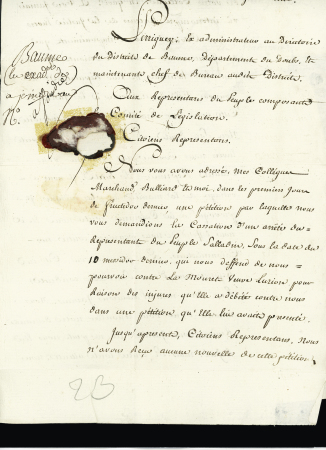 Perriguey, Ex administrateur au Directoire
du district de Baume, département du Doubs, et
maintenant chef de Bureau audit District.
Aux Representans du Peuple composants
le Comité de Législation.
Citoiens Representans.
Baume
Nous vous avons adressé, mes Collègues
Marchand, Bulliard et moi, dans les premiers Jours
de fructidor dernier, une pétition par laquelle nous
vous demandions la Cassation d'un arrêté du
Représentant du Peuple Salladin, sous la date du
10 messidor dernier, qui nous deffend de nous
pourvoir contre La veuve pour
Raison des injures qu'Elle a débitées contre nous
dans une pétition qu'Elle lui avait présenté.
Jusqu'aprésent, Citoiens Représentans, Nous
n'avons Reçu aucune nouvelle de cette pétition,
23